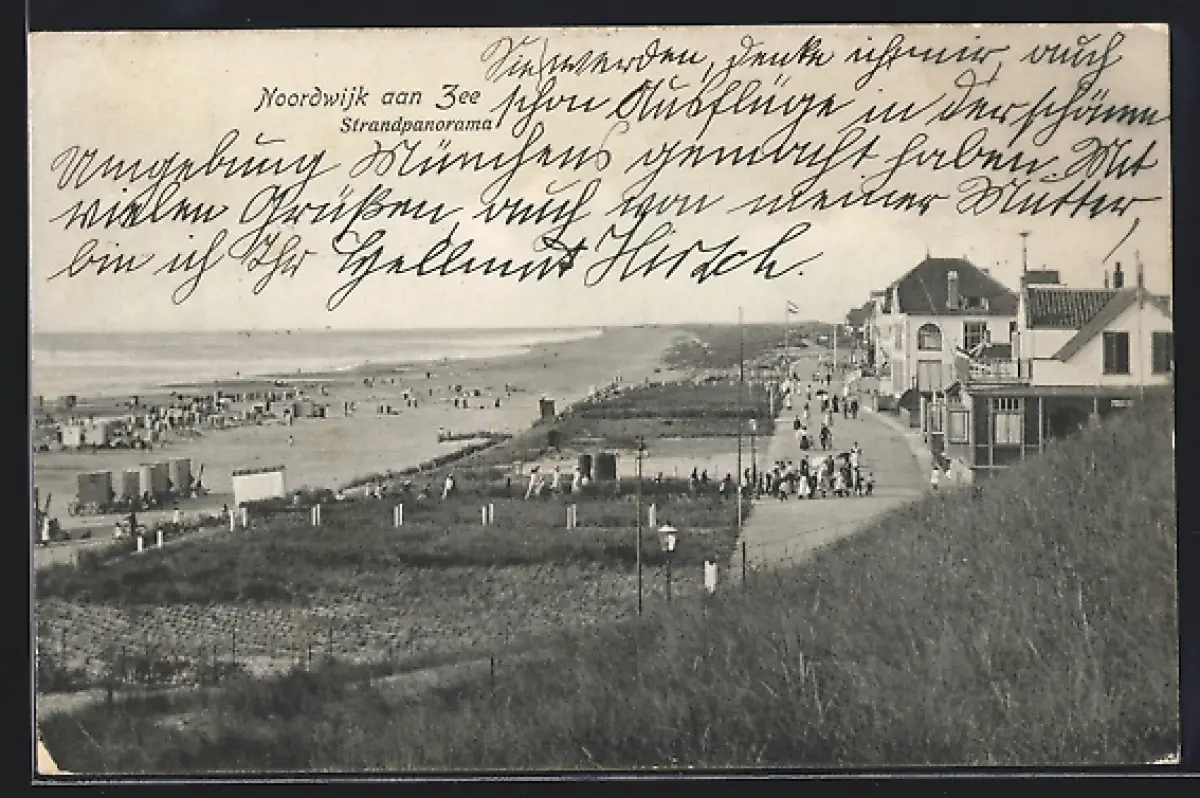 Noordwijk aan Zee
Strandpanorama
Sie werden, denke ich mir, auch
schon Ausflüge in der schönen
Umgebung Münchens gemacht haben. Mit
vielen Grüßen, auch von meiner Mutter,
bin ich Ihr Hellmut Hirsch.